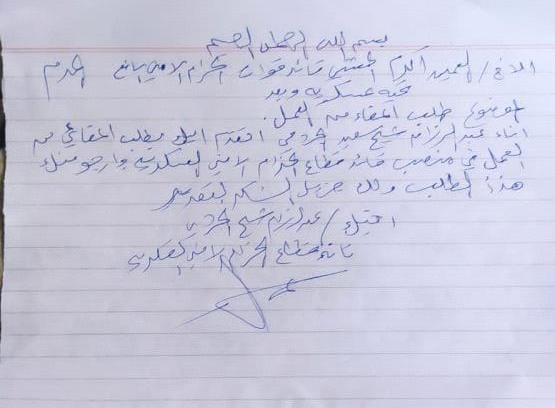 بسم الله الرحمن الرحيم
الاخ / العميد أكرم الحنشي قائد قوات الحزام الأمني يافع المحترم
تحية عسكرية وبعد
الموضوع طلب اعفاء من العمل.
انا عبدالرزاق شيخ الجردمي اتقدم اليك بطلب اعفائي من
العمل في منصب قائد قطاع الحزام الامني العسكرية وارجو منك
هذا الطلب ولك جزيل الشكر والتقدير
اخيك / عبدالرزاق شيخ الجردمي
قائد قطاع الحزام الامني العسكرية